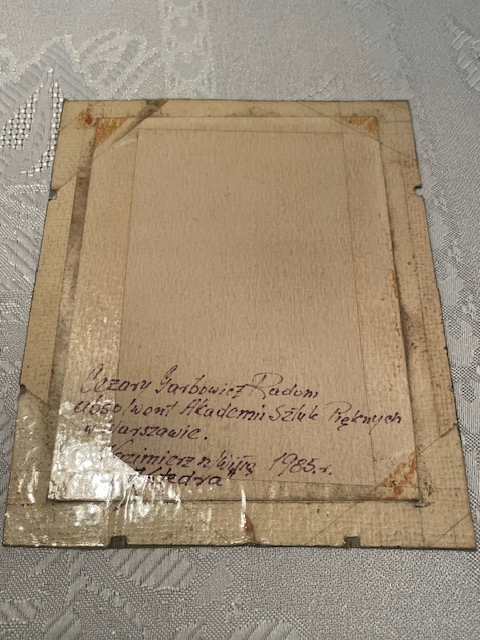 Cezary Garbowicz Radom
absolwent Akademii Sztuk Pięknych
w Warszawie.
Kazimierz n/Wisłą 1985.r.
"Katedra"